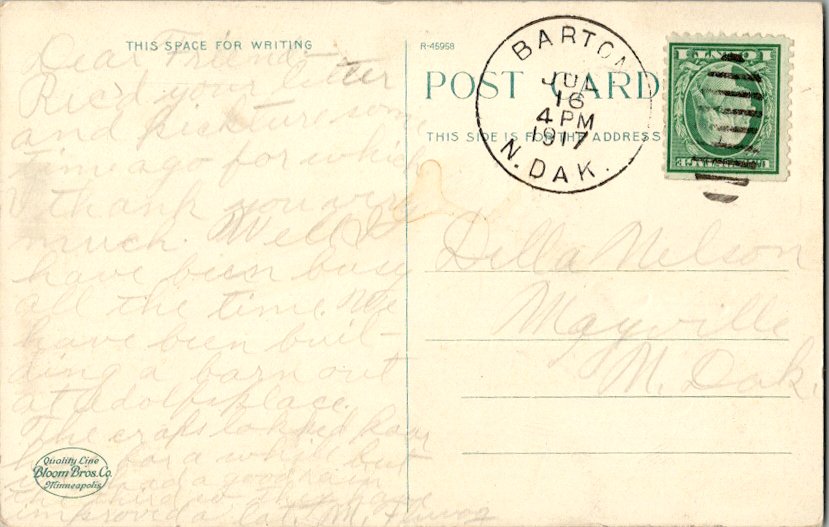 THIS SPACE FOR WRITING
Dear Friend
Rec'd your letter
and pickture some
time ago for which
I thank you very
much. Well I
have been busy
all the time. We
have been buil-
ding a barn out
at Adolfs place.
The crops looked poor
for a while but
had a good rain
the third so they have
improved a lot. M.
Quality Line
Bloom Bros. Co.
Minneapolis
R-45958
POST CARD
THIS SIDE IS FOR THE ADDRESS
BARTON
JUL
16
4 PM
1917
N. DAK.
Della Nelson
Mayville
N. Dak.